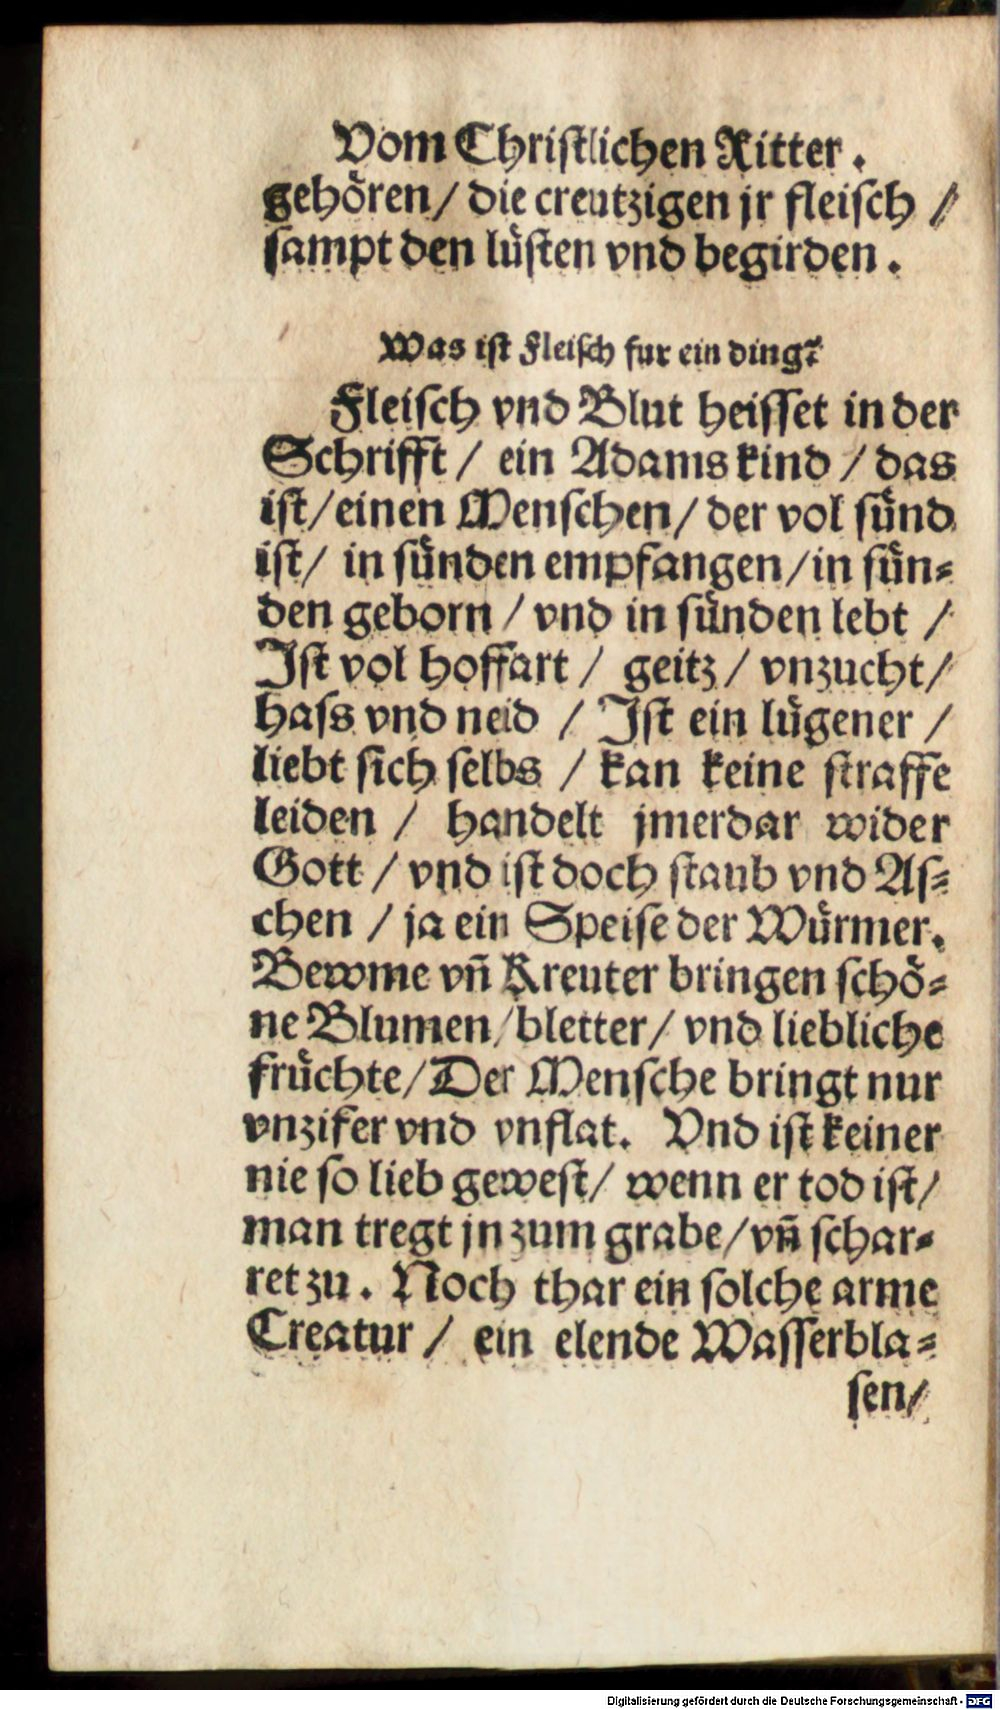 Vom Christlichen Ritter.
gehören/ die creutzigen jr fleisch /
sampt den lüsten vnd begirden.
Was ist Fleisch fur ein ding?
Fleisch vnd Blut heisset in der
Schrifft / ein Adams kind / das
ist/ einen Menschen/ der vol sünd
ist/ in sünden empfangen/ in sün⸗
den geborn / vnd in sünden lebt /
Ist vol hoffart / geitz / vnzucht/
hass vnd neid / Ist ein lügener /
liebt sich selbs / kan keine straffe
leiden / handelt jmerdar wider
Gott / vnd ist doch staub vnd As⸗
chen / ja ein Speise der Würmer.
Bewme vñ Kreuter bringen schö⸗
ne Blumen/ bletter/ vnd liebliche
früchte/ Der Mensche bringt nur
vnzifer vnd vnflat. Vnd ist keiner
nie so lieb gewest/ wenn er tod ist/
man tregt jn zum grabe/ vñ schar⸗
ret zu. Noch thar ein solche arme
Creatur / ein elende Wasserbla⸗
sen/
Digitalisierung gefördert durch die Deutsche Forschungsgemeinschaft - DFG